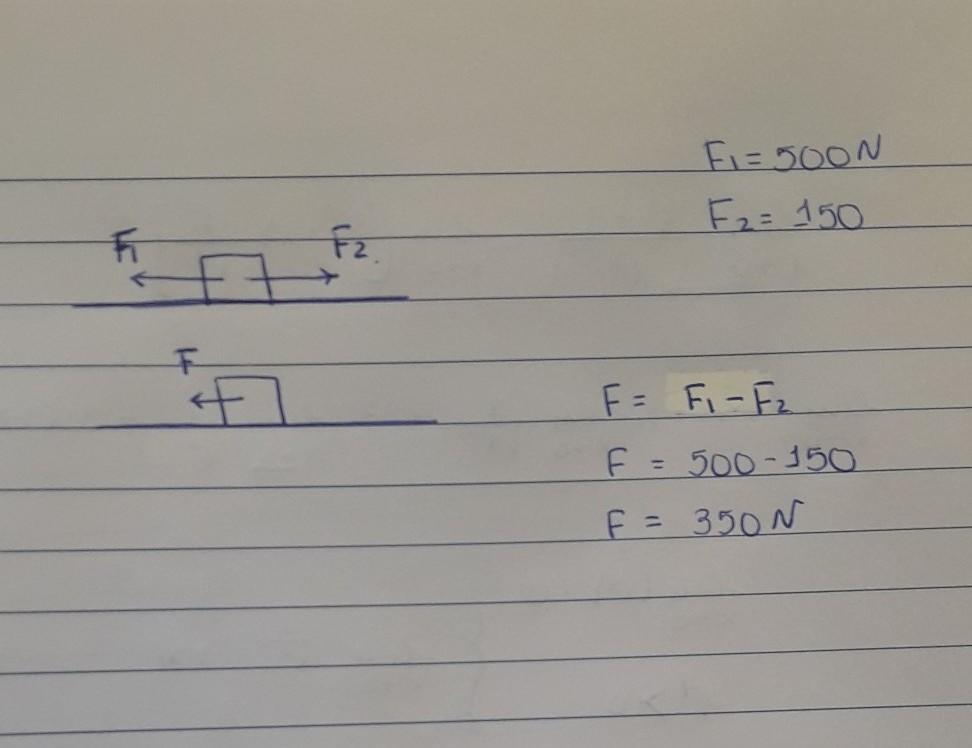 F₁ = 500N
F₂ = 150
F₁ F₂.
F
F = F₁ - F₂
F = 500 - 150
F = 350N